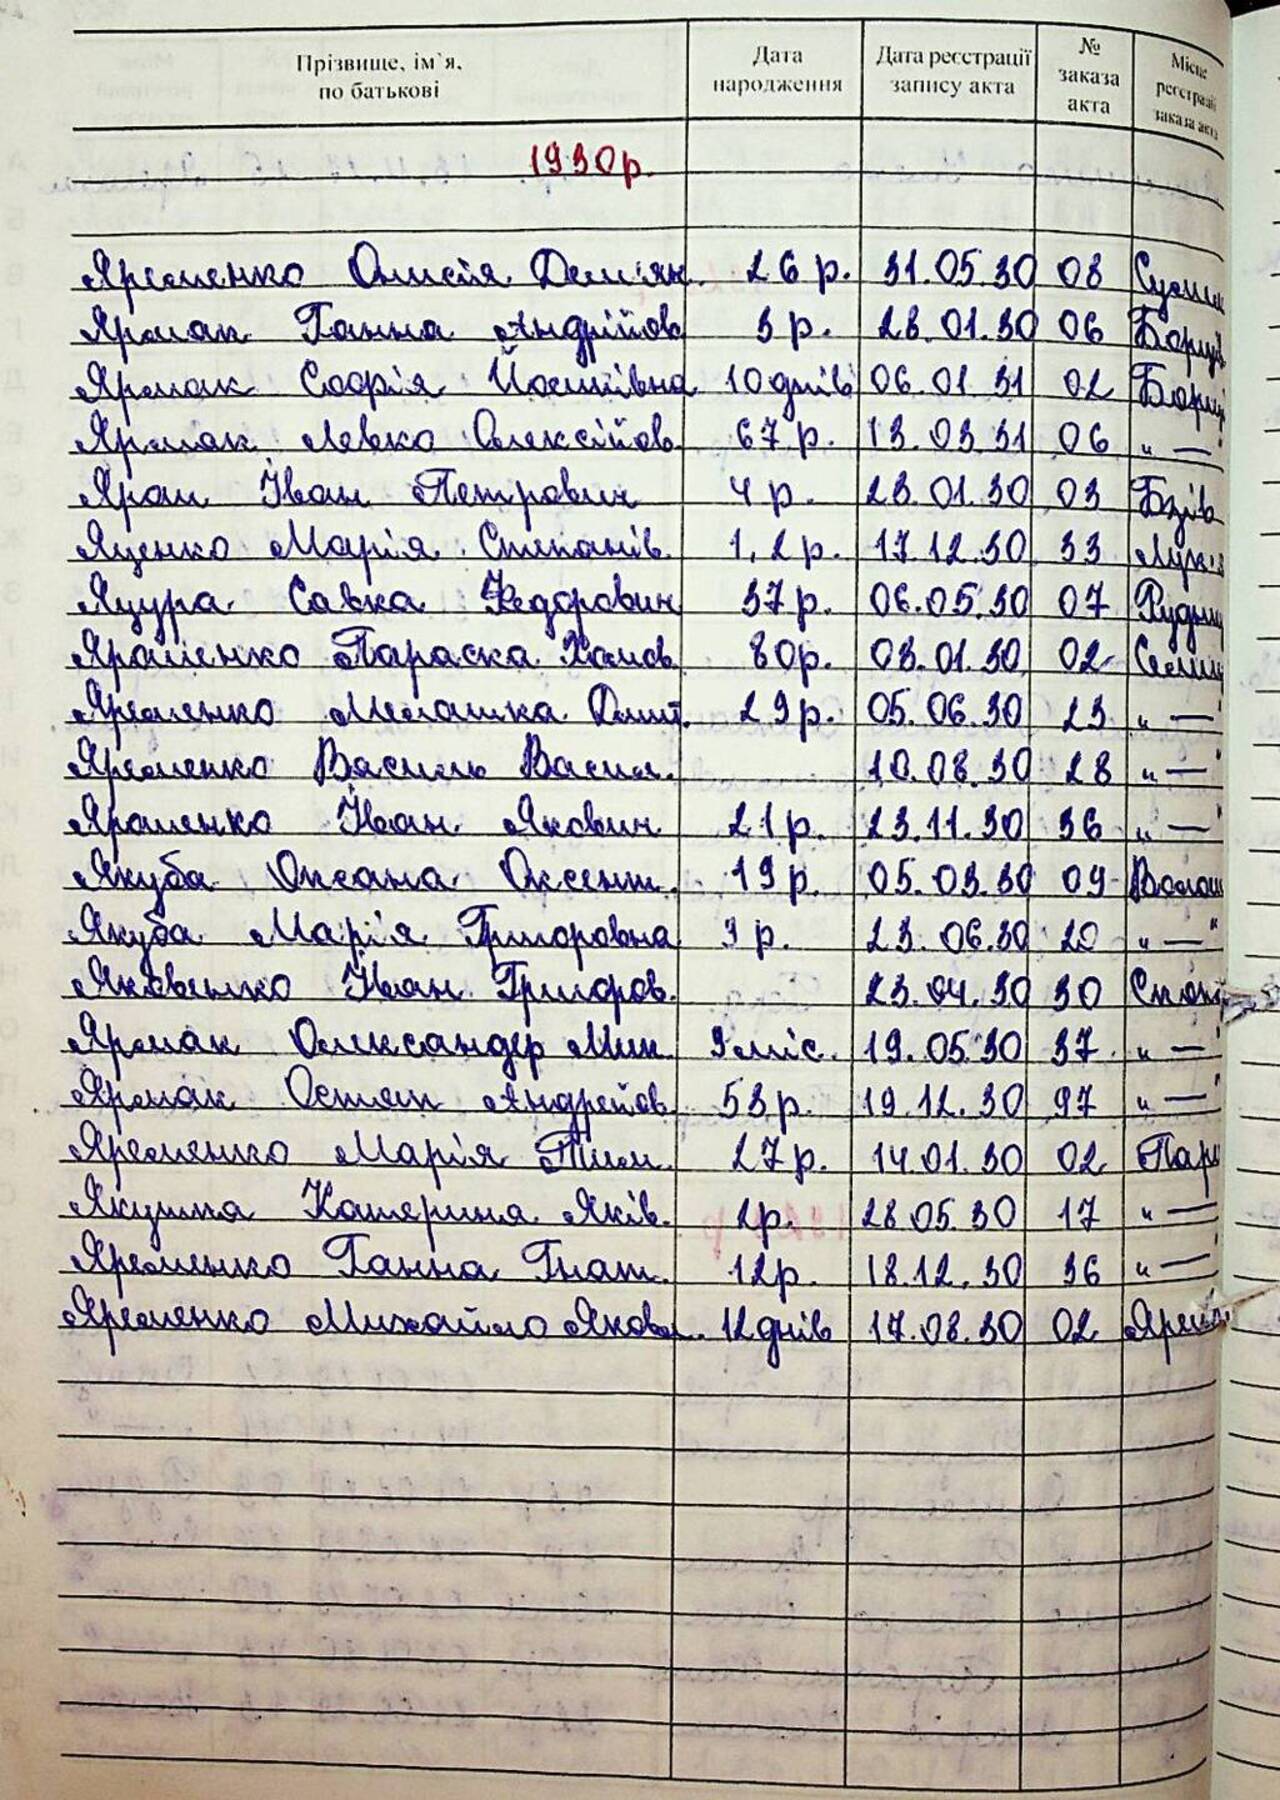 Прізвище, ім`я, по батькові Дата народження Дата реєстрації запису акта № заказа акта Місце реєстрації заказа акта
1930р.
Яременко Дем'ян. 26 р. 31.05.30 08
Ярмак Ганна Андріїов 3 р. 28.01.30 06 Борщів
Ярмак Софія Йосипівна 10 днів 06.01.31 02 Борщі
Ярмак Левко Олексійов. 67 р. 13.03.31 06 „—"
Яраш Іван Петрович 4 р. 23.01.30 03 Бзів
Яценко Марія Степанів. 1,2 р. 17.12.30 33
Яцура Савка Федорович 37 р. 06.05.30 07 Рудни
Ярошенко Параска Хомов. 80р. 03.01.30 02 Селищ
Яременко Мелашка Дмит. 29 р. 05.06.30 23 „—"
Яременко Василь Васил. 10.08.30 28 „—"
Ярошенко Іван Якович 21 р. 23.11.30 36 „—"
Якуба Оксана Оксент. 19 р. 05.03.30 09 Волош
Якуба Марія Григоровна 3 р. 23.06.30 20 „—"
Яковенко Іван Григоров. 23.04.30 30
Ярмак Олександер Мик. 9 міс. 19.05.30 37 „—"
Ярмак Остап Андрейов. 53 р. 19.12.30 97 „—"
Яременко Марія Тим. 27 р. 14.01.30 02 Пари
Якушка Катерина Яків. 2р. 28.05.30 17 „—"
Яременко Ганна Гнат. 12р. 18.12.30 36 „—"
Яременко Михайло Яков. 12 днів 17.08.30 02